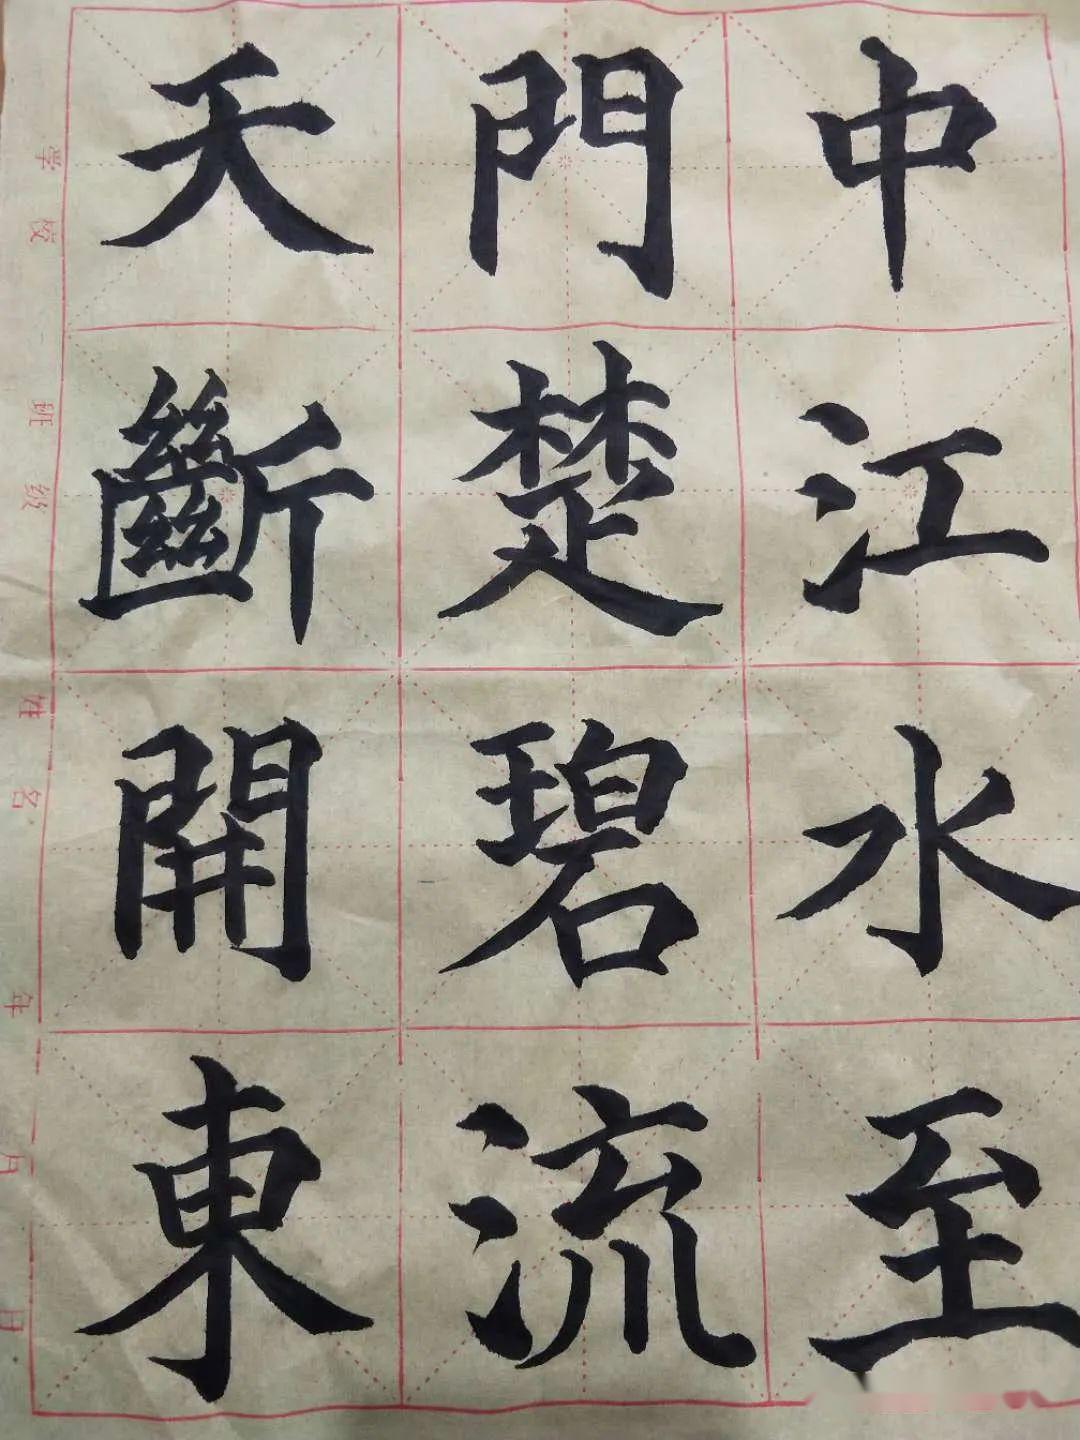 天門中
斷楚江
開碧水
東流至
学校 班级 姓名 年 月 日